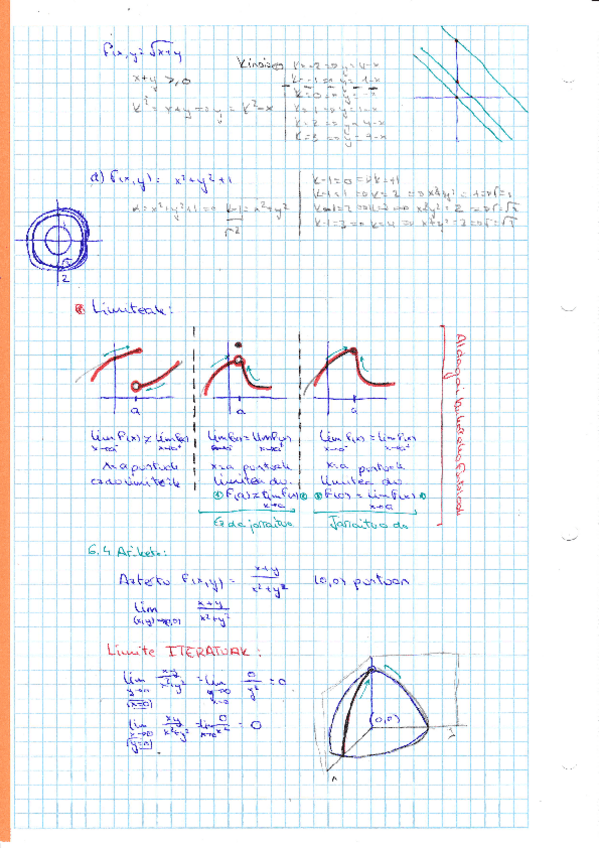 f(x,y)=√x+y
x+y ≥0
k² = x+y => y = k²-x
k=-2 => y=4-x
k=-1 => y=1-x
k=0 => y=-x
k=1 => y=1-x
k=2 => y=4-x
k=3 => y=9-x
d) f(x,y) = x²+y²+1
k=x²+y²+1 => k-1=x²+y²
r²
k-1=0 => k=+1
k-1=1 => k=2 => x²+y²=1 => r=1
k-1=2 => k=3 => x²+y²=2 => r=√2
k-1=3 => k=4 => x²+y²=3 => r=√3
√2
2
Limiteak:
a
a
a
lim f(x) ≠ lim f(x)
x→a⁻ x→a⁺
x=a puntuak
ez du limiterik
lim f(x) = lim f(x)
x→a⁻ x→a⁺
x=a puntuak
limitea du.
f(a) ≠ lim f(x)
x→a
Ez da jarraitua
lim f(x) = lim f(x)
x→a⁻ x→a⁺
x=a puntuak
limitea du
f(a) = lim f(x)
x→a
Jarraitua da
Aldagai bakarreko funtzioak
6.4 Ariketa:
Aztertu f(x,y) = x+y / x²+y² (0,0) puntuan
lim x+y / x²+y²
(x,y)→(0,0)
Limite ITERATUAK:
lim xy / x²+y² = lim 0 / y² = 0
y→0
x=0
lim xy / x²+y² = lim 0 / x² = 0
x→0
y=0
(0,0)